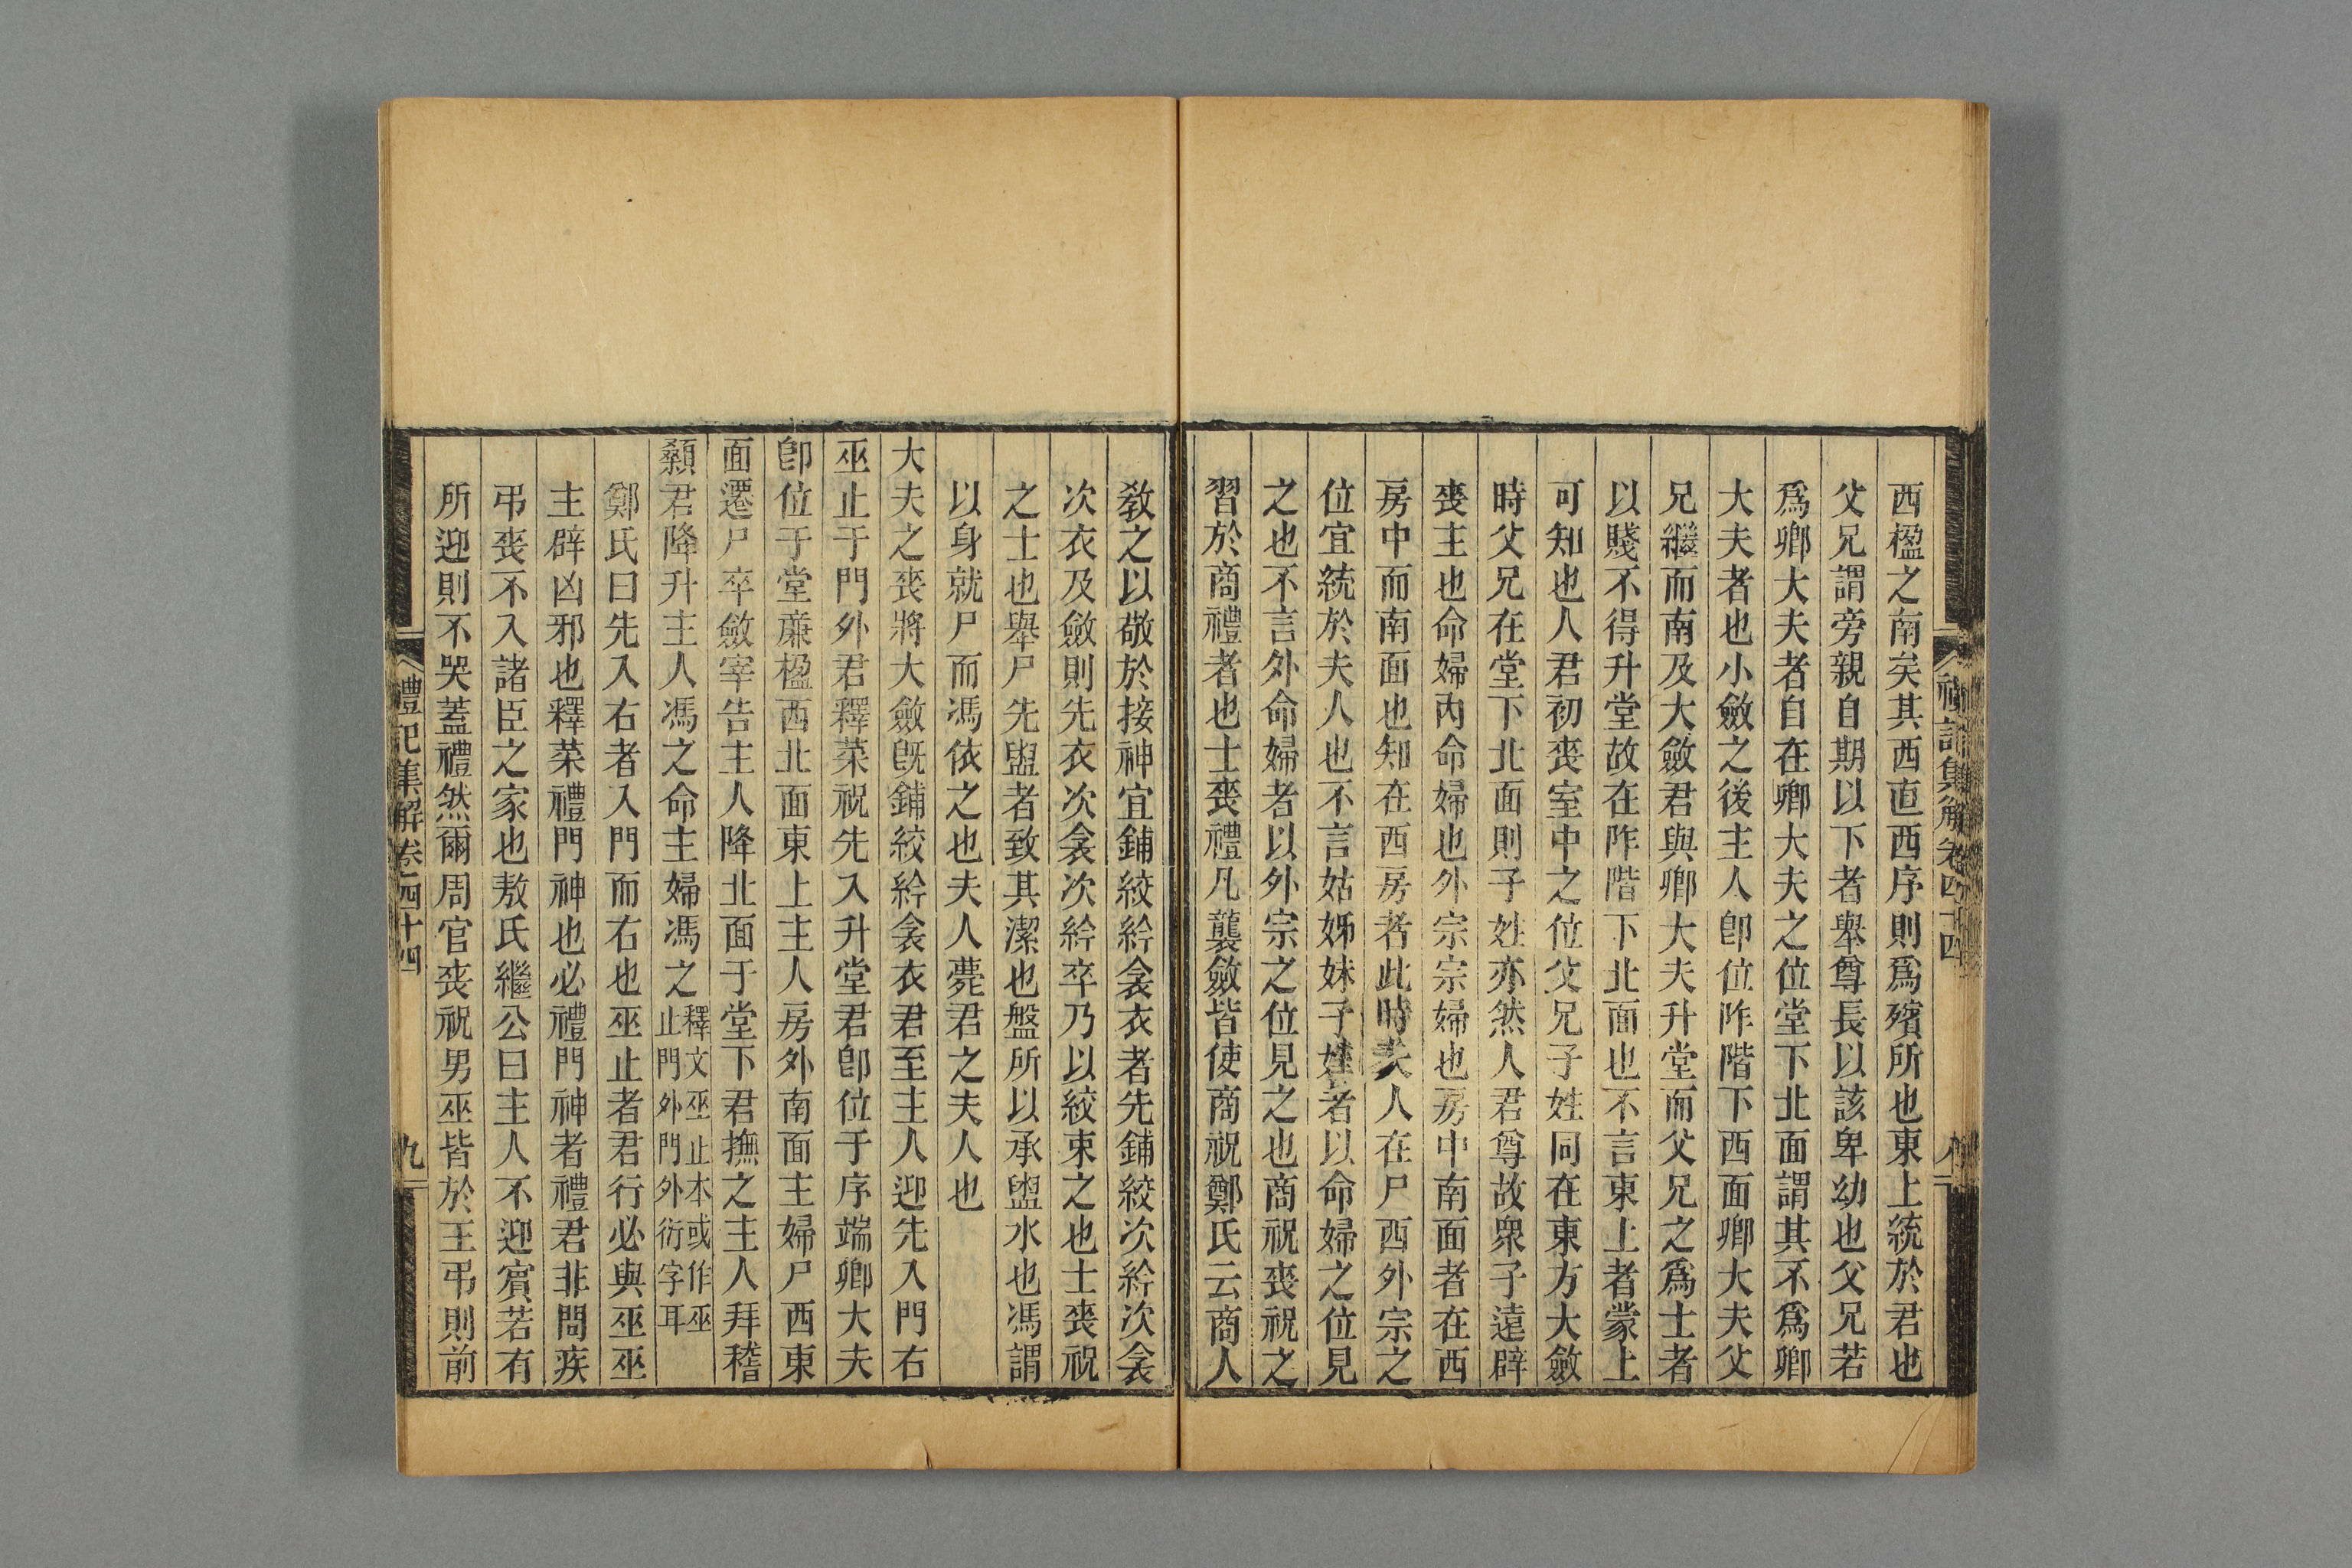 禮記集解卷四十四
八
西楹之南矣其西直西序則爲殯所也東上統於君也
父兄謂旁親自期以下者舉尊長以該卑幼也父兄若
爲卿大夫者自在卿大夫之位堂下北面謂其不爲卿
大夫者也小斂之後主人卽位阼階下西面卿大夫父
兄繼而南及大斂君與卿大夫升堂而父兄之爲士者
以賤不得升堂故在阼階下北面也不言東上者蒙上
可知也人君初喪室中之位父兄子姓同在東方大斂
時父兄在堂下北面則子姓亦然人君尊故衆子遠辟
喪主也命婦內命婦也外宗宗婦也房中南面者在西
房中而南面也知在西房者此時夫人在尸西外宗之
位宜統於夫人也不言姑姊妹子姓者以命婦之位見
之也不言外命婦者以外宗之位見之也商祝喪祝之
習於商禮者也士喪禮凡襲斂皆使商祝鄭氏云商人
敎之以敬於接神宜鋪絞紟衾衣者先鋪絞次紟次衾
次衣及斂則先衣次衾次紟卒乃以絞束之也士喪祝
之士也舉尸先盥者致其潔也盤所以承盥水也馮謂
以身就尸而馮依之也夫人薨君之夫人也
大夫之喪將大斂旣鋪絞紟衾衣君至主人迎先入門右
巫止于門外君釋菜祝先入升堂君卽位于序端卿大夫
卽位于堂廉楹西北面東上主人房外南面主婦尸西東
面遷尸卒斂宰告主人降北面于堂下君撫之主人拜稽
顙君降升主人馮之命主婦馮之釋文巫止本或作巫
止門外門外衍字耳
鄭氏曰先入右者入門而右也巫止者君行必與巫巫
主辟凶邪也釋菜禮門神也必禮門神者禮君非問疾
弔喪不入諸臣之家也敖氏繼公曰主人不迎賓若有
所迎則不哭蓋禮然爾周官喪祝男巫皆於王弔則前
禮記集解卷四十四
九